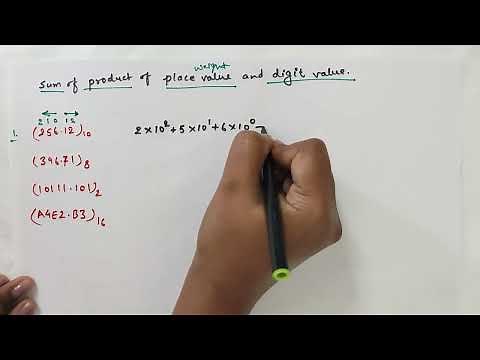 weight
Sum of product of place value and digit value.
2 1 0 1 2
1. (256.12)₁₀ 2×10²+5×10¹+6×10⁰
(346.71)₈
(10111.101)₂
(A4E2.B3)₁₆